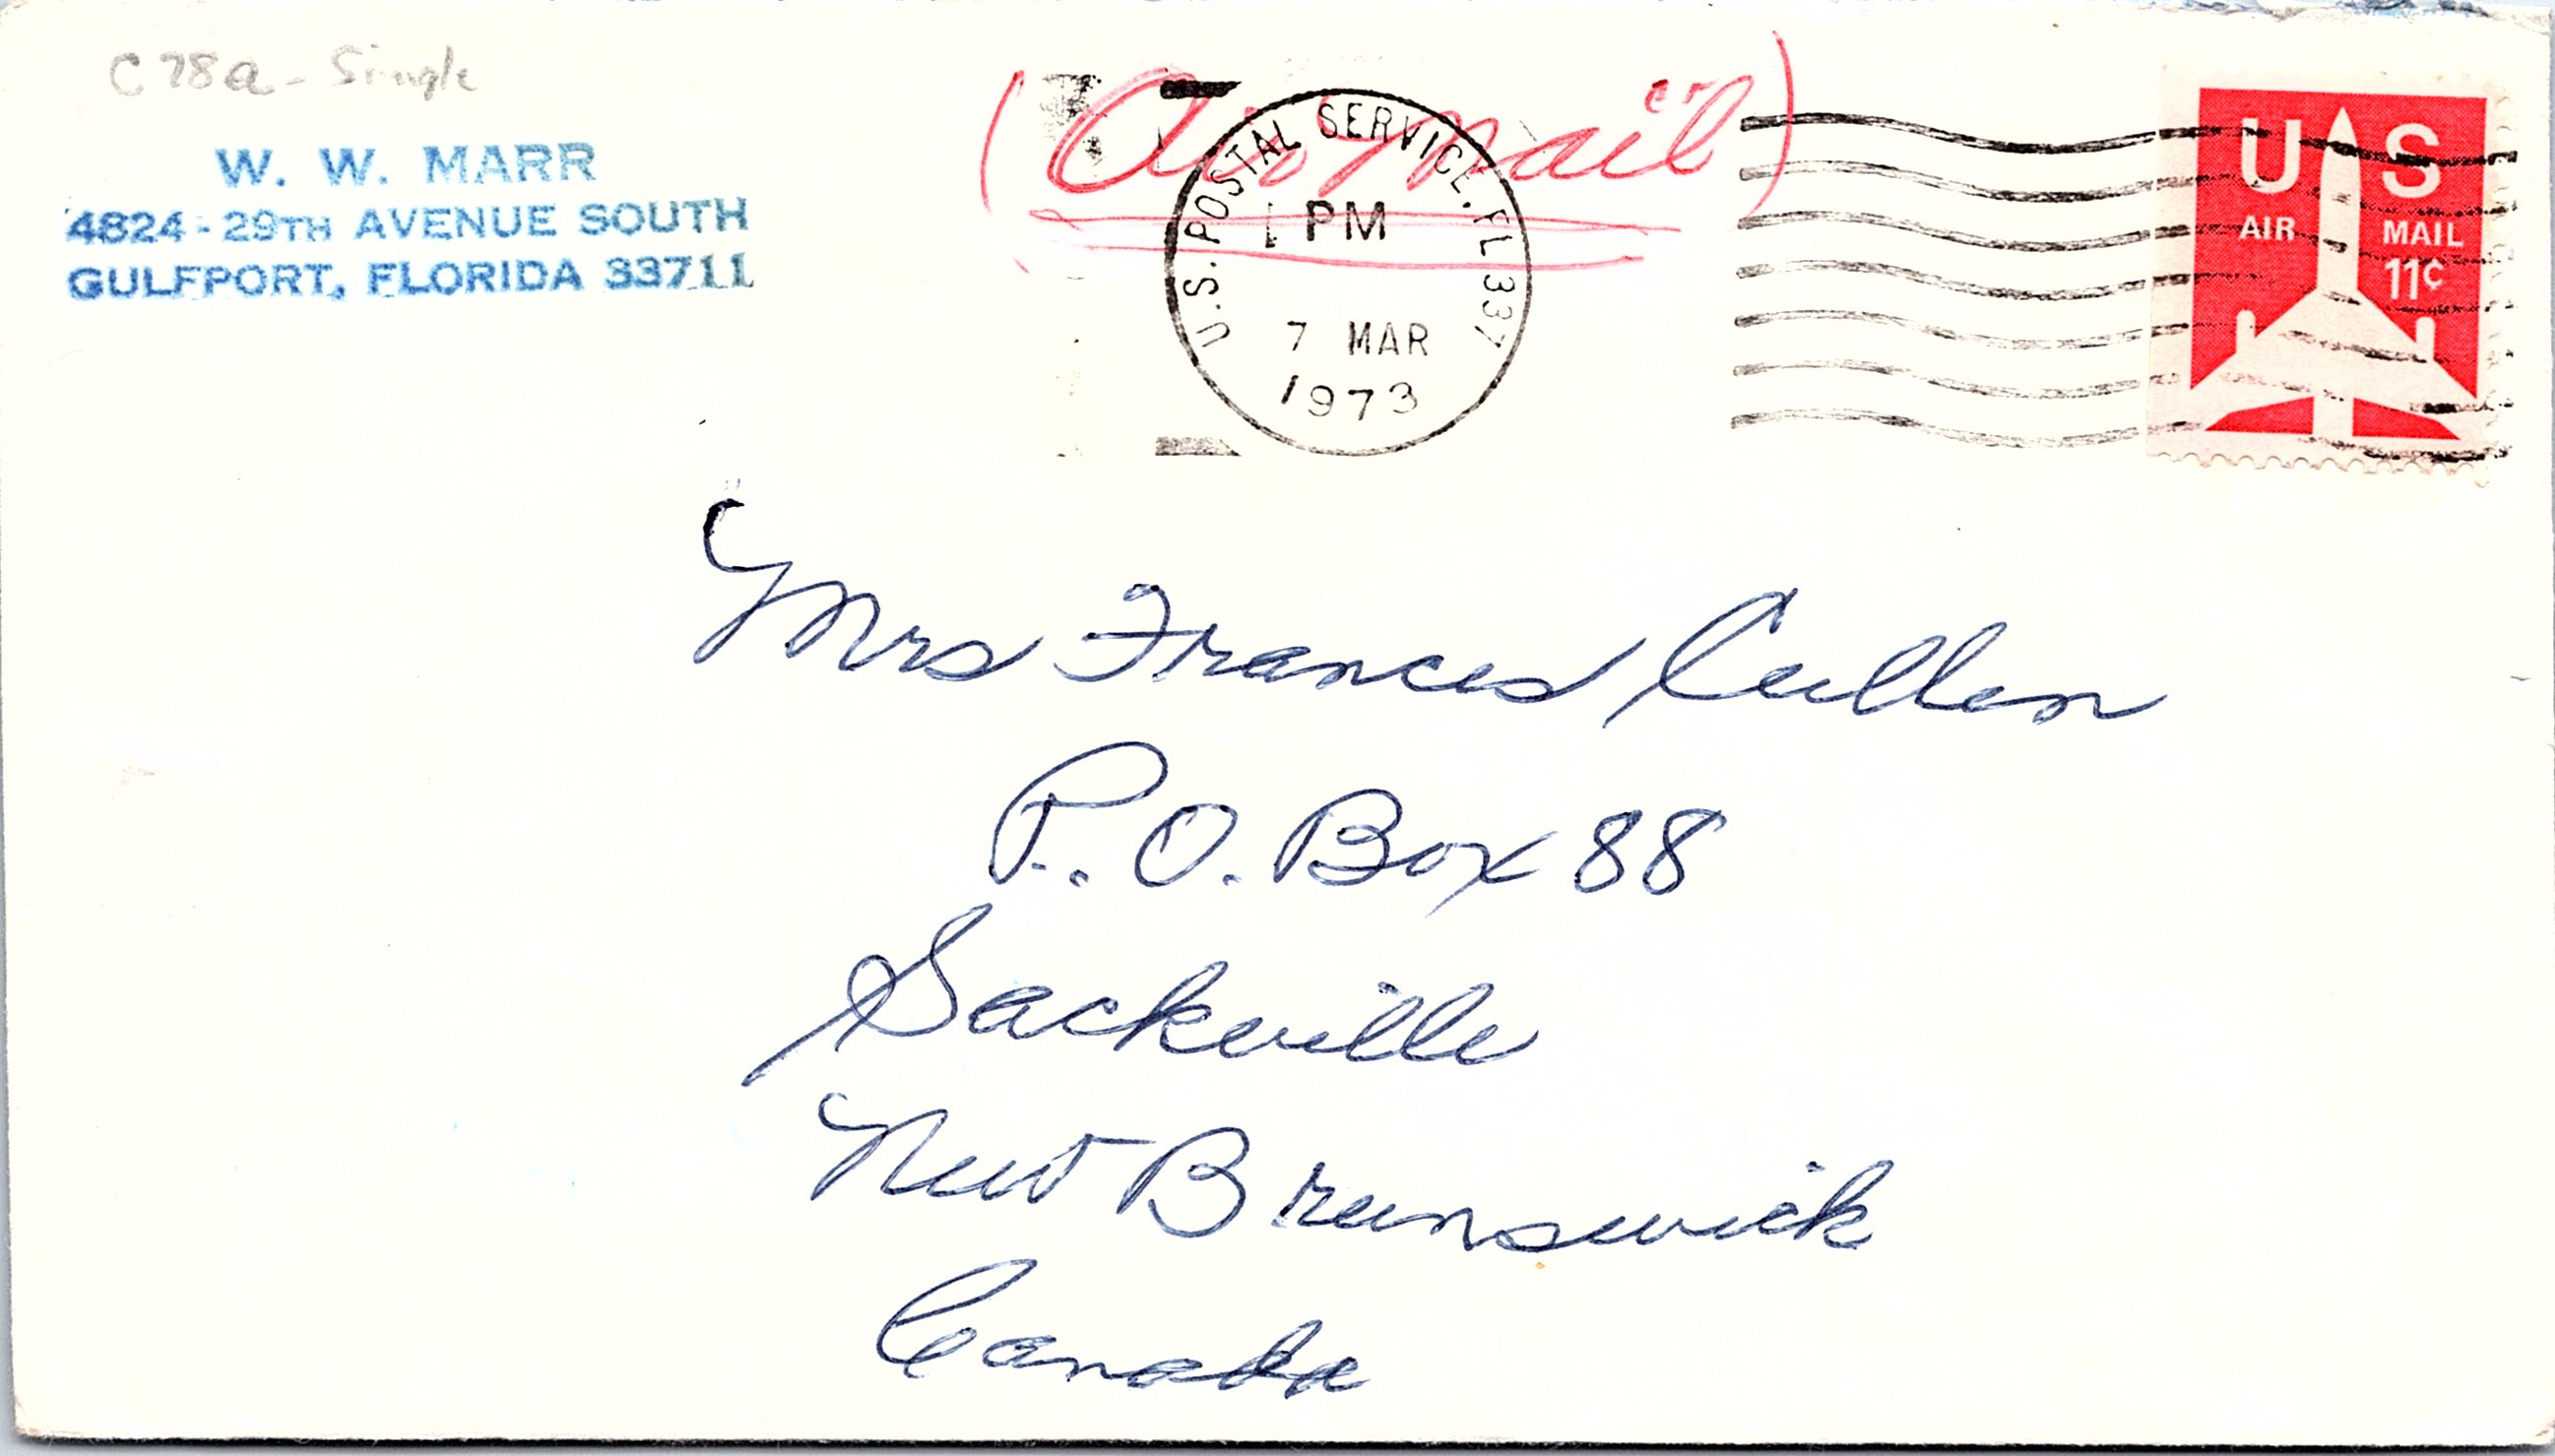 C78a - Single
W. W. MARR
4824 - 29TH AVENUE SOUTH
GULFPORT, FLORIDA 33711
(Air Mail)
U.S. POSTAL SERVICE. FL 337
PM
7 MAR
1973
U S
AIR MAIL
11¢
Mrs Frances Cullen
P.O. Box 88
Sackville
New Brunswick
Canada